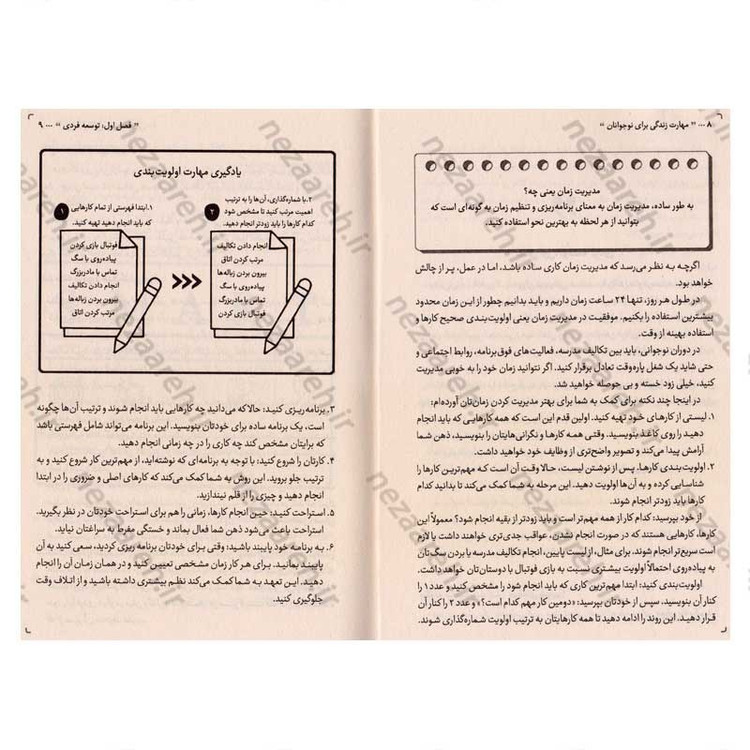 ۸ ... " مهارت زندگی برای نوجوانان "
مدیریت زمان یعنی چه؟
به طور ساده، مدیریت زمان به معنای برنامه‌ریزی و تنظیم زمان به گونه‌ای است که
بتوانید از هر لحظه به بهترین نحو استفاده کنید.
اگرچه به نظر می‌رسد که مدیریت زمان کاری ساده باشد، اما در عمل، پر از چالش
خواهد بود.
در طول هر روز، تنها ۲۴ ساعت زمان داریم و باید بدانیم چطور از این زمان محدود
بیشترین استفاده را بکنیم. موفقیت در مدیریت زمان یعنی اولویت‌بندی صحیح کارها و
استفاده بهینه از وقت.
در دوران نوجوانی، باید بین تکالیف مدرسه، فعالیت‌های فوق‌برنامه، روابط اجتماعی و
حتی شاید یک شغل پاره‌وقت تعادل برقرار کنید. اگر نتوانید زمان خود را به خوبی مدیریت
کنید، خیلی زود خسته و بی حوصله خواهید شد.
در اینجا چند نکته برای کمک به شما برای بهتر مدیریت کردن زمان‌تان آورده‌ام:
۱. لیستی از کارهای خود تهیه کنید. اولین قدم این است که همه کارهایی که باید انجام
دهید را روی کاغذ بنویسید. وقتی همه کارها و نگرانی‌هایتان را بنویسید، ذهن شما
آرامش پیدا می‌کند و تصویر واضح‌تری از وظایف خود خواهید داشت.
۲. اولویت‌بندی کارها. پس از نوشتن لیست، حالا وقت آن است که مهم‌ترین کارها را
شناسایی کرده و به آن‌ها اولویت دهید. این مرحله به شما کمک می‌کند تا بدانید کدام
کارها باید زودتر انجام شوند.
از خود بپرسید: کدام کار از همه مهم‌تر است و باید زودتر از بقیه انجام شود؟ معمولاً این
کارها، کارهایی هستند که در صورت انجام نشدن، عواقب جدی‌تری خواهند داشت یا لازم
است سریع‌تر انجام شوند. برای مثال، از لیست پایین، انجام تکالیف مدرسه یا بردن سگ‌تان
به پیاده‌روی احتمالاً اولویت بیشتری نسبت به بازی فوتبال با دوستان‌تان خواهد داشت.
اولویت‌بندی کنید: ابتدا مهم‌ترین کاری که باید انجام شود را مشخص کنید و عدد ۱ را
کنار آن بنویسید. سپس از خودتان بپرسید: «دومین کار مهم کدام است؟» و عدد ۲ را کنار آن
قرار دهید. این روند را ادامه دهید تا همه کارهایتان به ترتیب اولویت شماره‌گذاری شوند.
" فصل اول: توسعه فردی " ... ۹
یادگیری مهارت اولویت‌بندی
۱
۱.ابتدا فهرستی از تمام کارهایی
که باید انجام دهید تهیه کنید.
فوتبال بازی کردن
پیاده‌روی با سگ
تماس با مادربزرگ
انجام دادن تکالیف
بیرون بردن زباله‌ها
مرتب کردن اتاق
۲
۲.با شماره‌گذاری، آن‌ها را به ترتیب
اهمیت مرتب کنید تا مشخص شود
کدام کارها را باید زودتر انجام دهید.
انجام دادن تکالیف
مرتب کردن اتاق
بیرون بردن زباله‌ها
پیاده‌روی با سگ
تماس با مادربزرگ
فوتبال بازی کردن
۳. برنامه‌ریزی کنید: حالا که می‌دانید چه کارهایی باید انجام شوند و ترتیب آن‌ها چگونه
است، یک برنامه ساده برای خودتان بنویسید. این برنامه می‌تواند شامل فهرستی باشد
که برایتان مشخص کند چه کاری را در چه زمانی انجام دهید.
۴. کارتان را شروع کنید: با توجه به برنامه‌ای که نوشته‌اید، از مهم‌ترین کار شروع کنید و به
ترتیب جلو بروید. این روش به شما کمک می‌کند که کارهای اصلی و ضروری را در ابتدا
انجام دهید و چیزی را از قلم نیندازید.
۵. استراحت کنید: حین انجام کارها، زمانی را هم برای استراحت خودتان در نظر بگیرید.
استراحت باعث می‌شود ذهن شما فعال بماند و خستگی مفرط به سراغتان نیاید.
۶. به برنامه خود پایبند باشید: وقتی برای خودتان برنامه ریزی کردید، سعی کنید به آن
پایبند بمانید. برای هر کار زمان مشخصی تعیین کنید و در همان زمان آن را انجام
دهید. این تعهد به شما کمک می‌کند نظم بیشتری داشته باشید و از اتلاف وقت
جلوگیری کنید.
nezaareh.ir